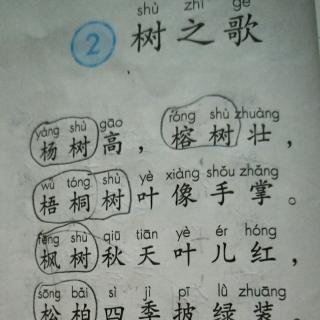 shù zhī gē
2 树之歌
yáng shù gāo róng shù zhuàng
杨树高，榕树壮，
wú tóng shù yè xiàng shǒu zhǎng
梧桐树叶像手掌。
fēng shù qiū tiān yè ér hóng
枫树秋天叶儿红，
sōng bǎi sì jì pī lǜ zhuāng
松柏四季披绿装。